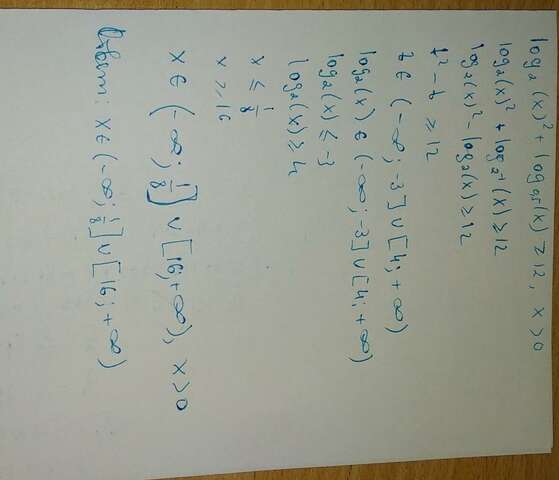 log₂(x)² + log₀,₅(x) ≥ 12, x > 0
log₂(x)² + log₂₋₁(x) ≥ 12
log₂(x)² - log₂(x) ≥ 12
t² - t ≥ 12
t ∈ (-∞; -3] ∪ [4; +∞)
log₂(x) ∈ (-∞; -3] ∪ [4; +∞)
log₂(x) ≤ -3
log₂(x) ≥ 4
x ≤ 1/8
x ≥ 16
x ∈ (-∞; 1/8] ∪ [16; +∞), x > 0
Ответ: x ∈ (-∞; 1/8] ∪ [16; +∞)